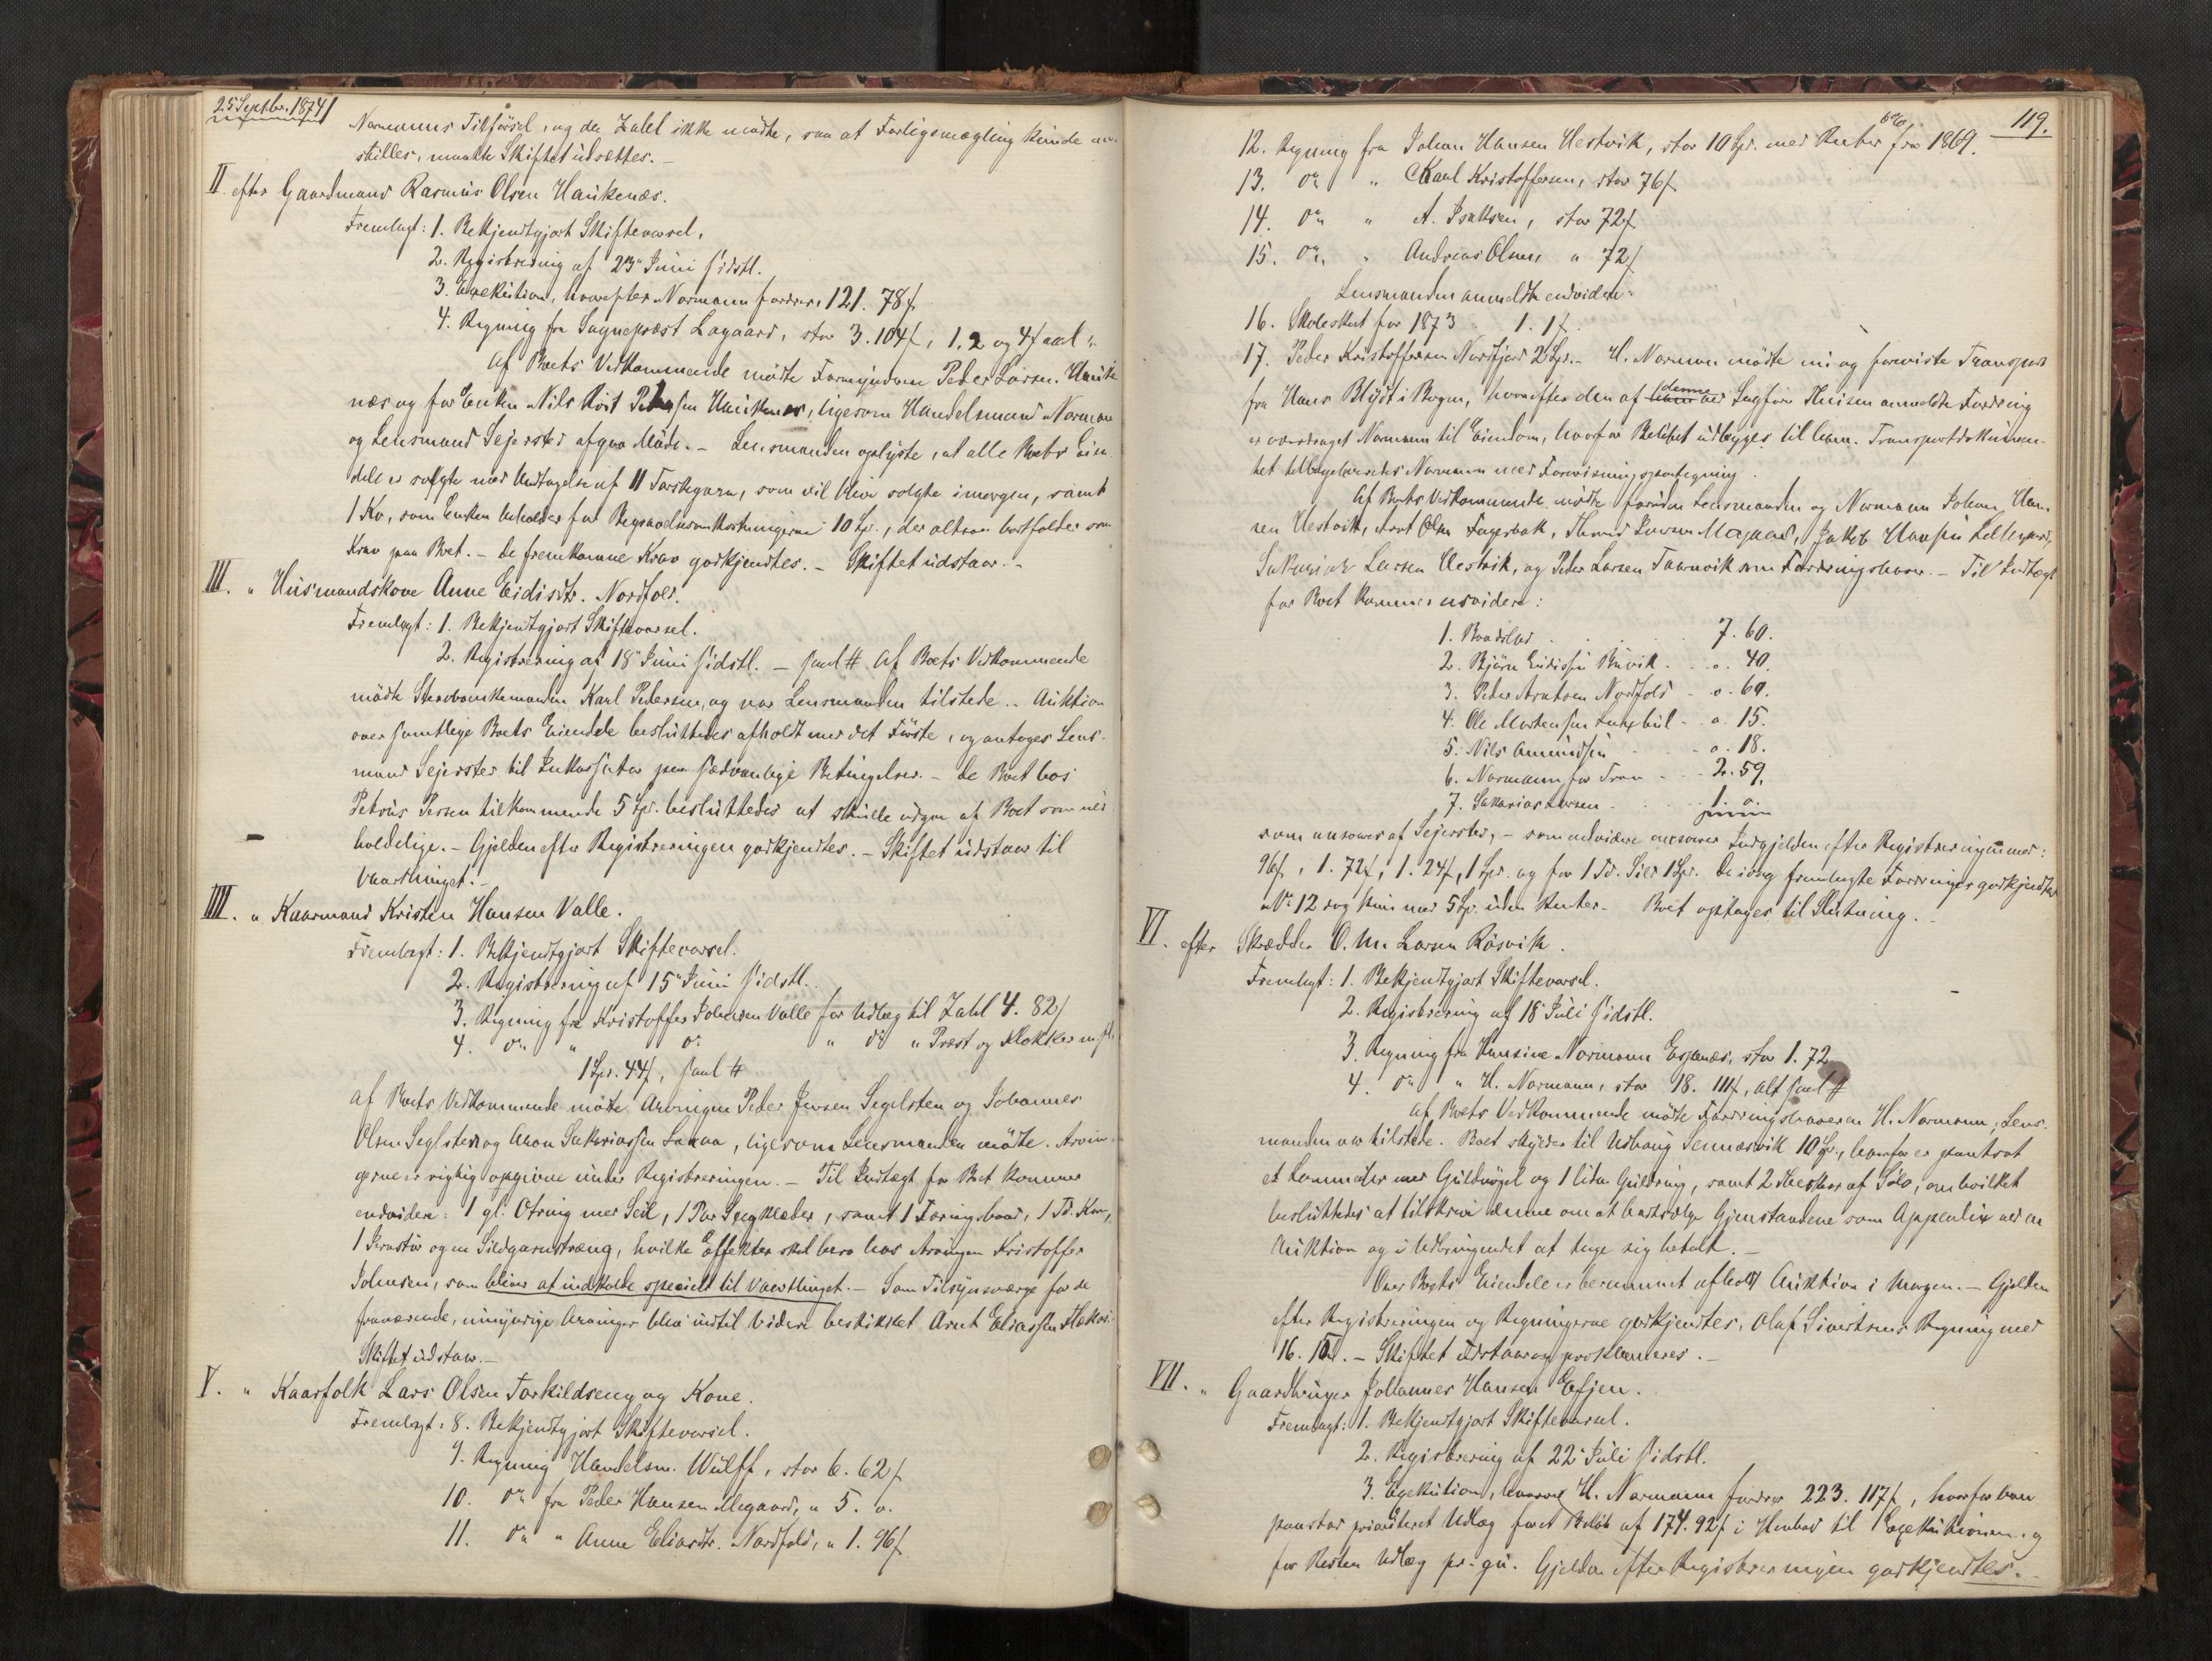 25 Septbr. 1874
Normanns Tilførsel, og da Zahl ikke mødte, saa at Forligsmægling kunde
stilles, maatte Skiftet udsættes. –
II. efter Gaardmand Rasmus Olsen Haukenæs.
Fremlagt: 1. Bekjendtgjort Skiftevarsel.
2. Registrering af 23" Juni sidstl.
3. Exekution, hvorefter Normann fordrer 121. 78 f
4. Regning fra Sognepræst Lagaard, stor 3. 104 f, 1. 2 og 4 f
Af Boets Vedkommende mødte Formynderen Peder Larsen Hauke
næs og for Enken Nils Røst Pedersen Haukenæs, ligesom Handelsmand Normann
og Lensmand Sejersted afgav Møde. – Lensmanden oplyste, at alle Boets Eien
dele er solgte med Undtagelse af 11 Torskegarn, som vil blive solgte imorgen, samt
1 Ko, som Enken beholder for Begravelsesomkostningerne 10 Spd., der altsaa bortfalder som
Krav paa Boet. – De fremkomne Krav godkjendtes. – Skiftet udstaar. –
III. " Husmandskone Anne Eidisdtr. Nordfold.
Fremlagt: 1. Bekjendtgjort Skiftevarsel.
2. Registrering af 18" Juni sidstl. – saal # Af Boets Vedkommende
mødte Stervboenkemanden Karl Pedersen, og var Lensmanden tilstede. – Auktion
over samtlige Boets Eiendele besluttedes afholdt med det Første, og antoges Lens-
mand Sejersted til Inkassator paa sædvanlige Betingelser. – De Boet hos
Petrus Persen tilkommende 5 Spd. besluttedes at skulle udgaa af Boet som ued
holdelige. – Gjelden efter Registreringen godkjendtes. – Skiftet udstaar til
Vaarthinget. –
IIII. " Kaarmand Kristen Hansen Valle.
Fremlagt: 1. Bekjendtgjort Skiftevarsel.
2. Registrering af 15" Juni sidstl.
3. Regning fra Kristoffer Johnsen Valle for Udlæg til Zahl 4. 82 f
4. do " do " do " Præst og Klokker m. fl.
1 Spd. 44 f, saal #
Af Boets Vedkommende mødte Arvingen Peder Jensen Segelsten og Johannes
Olsen Seglsten og Aron Sakariassen Lakaa, ligesom Lensmanden mødte. Arvin-
gerne er rigtig opgivne under Registreringen. – Til Indtægt for Boet kommer
endvidere: 1 gl. Otring med Seil, 1 Par Sengklæder, samt 1 Føringsbaad, 1 Td. Korn,
1 Jernstør og en Sildgarnstræng, hvilke Effekter skal bero hos Arvingen Kristoffer
Johnsen, som bliver at indkalde specielt til Vaarthinget. – Som Tilsynsværge for de
fraværende, umyndige Arvinger blev indtil videre beskikket Arnt Eliassen
Skiftet udstaar. –
V. " Kaarfolk Lars Olsen Torkildseng og Kone.
Fremlagt: 8. Bekjendtgjort Skiftevarsel.
9. Regning Handelsm. Wulff, stor 6. 62 f
10. do fra Peder Hansen Megaard, " 5. o.
11. do " Anne Eliasdtr. Nordfold, " 1. 96 f
119.
12. Regning fra Johan Hansen Hestvik, stor 10 Spd. med Renter 6% fra 1869.
13. do " Karl Kristoffersen, stor 76 f
14. do " A. Isaksen, stor 72 f
15. do " Andreas Olsen " 72 f
Lensmanden anmeldte endvidere:
16. Skoleskat for 1873 1. 1 f.
17. Peder Kristoffersen Nordfjord 2 Spd. – H. Normann mødte nu og foreviste Transport
fra Hans Blydt i Bergen, hvorefter den af denne ved Sagfører anmeldte Fordring
er overdraget Normann til Eiendom, hvorfor Beløbet udlægges til ham. Transportdokumen-
tet tilbageleveredes Normann med Forevisningspaategning.
Af Boets Vedkommende mødte foruden Lensmanden og Normann Johan Han
sen Hestvik, Arnt Olsen Fagerbak, Thomas Larsen Megaard, Jakob Hansen
Sakarias Larsen Hestvik, og Peder Larsen Taarnvik som Fordringshaver. – Til Indtægt
for Boet kommer endvidere:
1. Baadslod . . . 7. 60.
2. Bjørn Eidissen Buvik . . o. 40.
3. Peder Arntsen Nordfold – o. 60.
4. Ole Mortensen – o. 15.
5. Nils Amundsen – o. 18.
6. Normann for Tran – 2. 59.
7. Sakarias Larsen . . 1. o.
som ansvares af Sejersted, – som endvidere ansvarer Indgjelden efter Registreringen med:
96 f, 1. 72 f, 1. 24 f, 1 Spd. og for 1 Td. Sild 1 Spd. De øvrige fremlagte Fordringer godkjendtes
No 12 dog kun med 5 Spd. uden Renter. – Boet optages til Slutning. –
VI. efter Skrædder O. M. Larsen Røsvik.
Fremlagt: 1. Bekjendtgjort Skiftevarsel.
2. Registrering af 18 Juli sidstl.
3. Regning fra Hansine Normann Espenæs, stor 1. 72
4. do " H. Normann, stor 18. 111 f, alt saal #
Af Boets Vedkommende mødte Fordringshaveren H. Normann, Lens-
manden var tilstede. Boet skylder til Udhaug Sennesvik 10 Spd., hvorfor er pantsat
et Lommeuhr med Guldnøgel og 1 liden Guldring, samt 2 Theskeer af Sølv, om hvilket
besluttedes at tilskrive denne om at bortsælge Gjenstandene som Appendix ved en
Auktion og i Udbringendet at tage sig betalt. –
Over Boets Eiendele er berammet afholdt Auktion i Morgen. – Gjelden
efter Registreringen og Regningerne godkjendtes, Olaf Sivertsens Regning med
16. – Skiftet udstaar og proklameres. –
VII. " Gaardbruger Johannes Hansen Efjen.
Fremlagt: 1. Bekjendtgjort Skiftevarsel.
2. Registrering af 22 Juli sidstl.
3. Exekution, hvorved H. Normann fordrer 223. 117 f, hvorfor han
paastod prioriteret Udlæg for et Beløb af 174. 92 f i Henhold til Exekutionen og
for Resten Udlæg pr. qu. Gjelden efter Registreringen godkjendtes. –